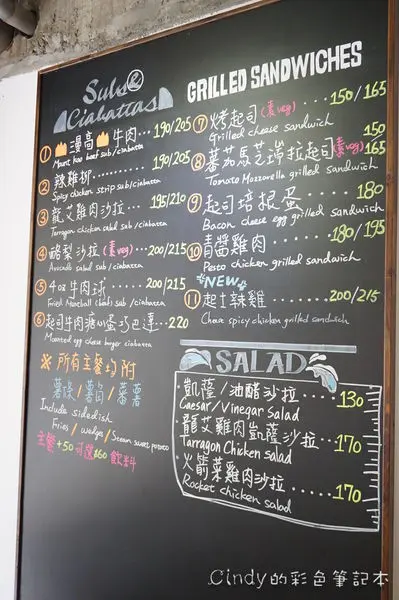 Subs &
Ciabattas
① 漫高牛肉...190/205
Mount hoo beef sub/ciabatta
② 辣雞柳.........190/205
Spicy chicken strip sub/ciabatta
③ 龍艾雞肉沙拉...195/210
Tarragon chicken salad sub/ciabatta
④ 酪梨沙拉(素veg)...200/215
Avocado salad sub/ciabatta
⑤ 4oz牛肉球....200/215
Fried Meatball (beef) sub/ciabatta
⑥ 起司牛肉蛋巧巴達..220
egg cheese burger ciabatta
※所有主餐均附
薯條/薯角/蕃薯
Include sidedish
Fries/wedge/Sweet potato
主餐+50可選$60飲料
GRILLED SANDWICHES
⑦ 烤起司(素veg)...150/165
Grilled cheese sandwich
⑧ 蕃茄馬芝瑞拉起司(素veg) 150 165
Tomato Mozzarella grilled sandwich
⑨ 起司培根蛋.......180
Bacon cheese egg grilled sandwich
⑩ 青醬雞肉.......180/195
Pesto chicken grilled sandwich
*NEW*
⑪ 起士辣雞.......200/215
Cheese spicy chicken grilled sandwich
SALAD
凱薩/油醋沙拉....130
Caesar/Vinegar salad
龍艾雞肉凱薩沙拉..170
Tarragon Chicken salad
火箭菜雞肉沙拉....170
Rocket chicken salad
Cindy的彩色筆記本